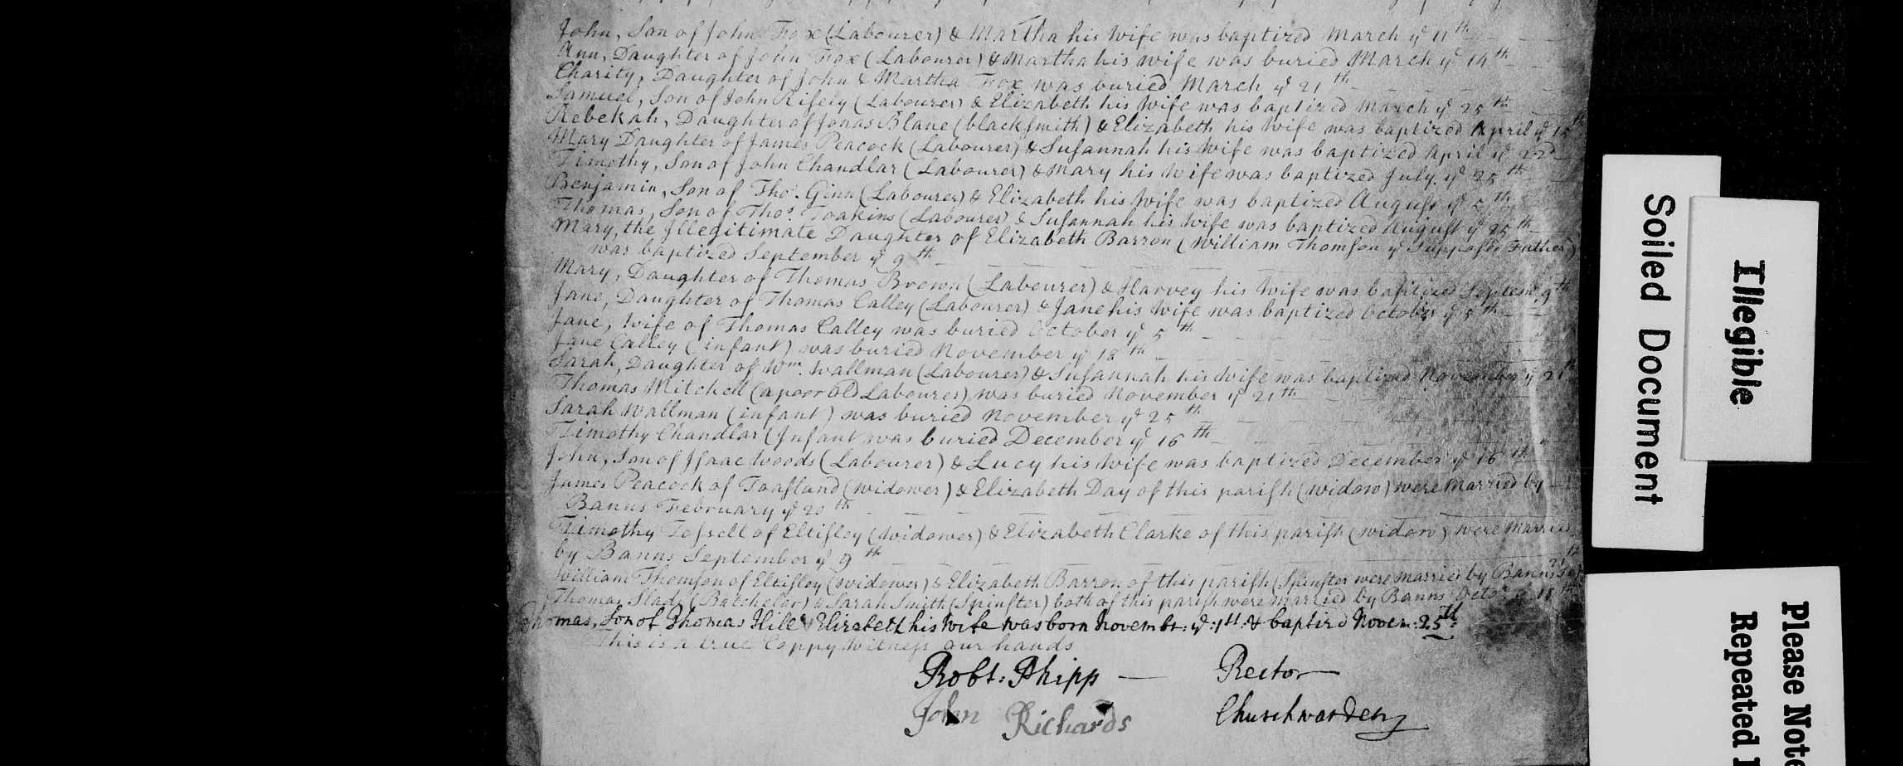 John, Son of John Fox (Labourer) & Martha his wife was baptized March ye 11th
Ann, Daughter of John Fox (Labourer) & Martha his wife was buried March ye 14th
Charity, Daughter of John & Martha Fox was buried March ye 21th
Samuel, Son of John Rifely (Labourer) & Elizabeth his wife was baptized March ye 25th
Rebekah, Daughter of Jonas Blane (blacksmith) & Elizabeth his wife was baptized April ye 15th
Mary Daughter of James Peacock (Labourer) & Susannah his wife was baptized April ye 22d
Timothy, Son of John Chandlar (Labourer) & Mary his wife was baptized July ye 25th
Benjamin, Son of Thos. Ginn (Labourer) & Elizabeth his wife was baptized August ye 5th
Thomas, Son of Thos. Joakins (Labourer) & Susannah his wife was baptized August ye 25th
Mary, the Illegitimate Daughter of Elizabeth Barron (William Thomson ye Supposed Father)
was baptized September ye 9th
Mary, Daughter of Thomas Brown (Labourer) & Harvey his wife was baptized Septem. 9th
Jane, Daughter of Thomas Calley (Labourer) & Jane his wife was baptized October ye 5th
Jane, wife of Thomas Calley was buried October ye 5th
Jane Calley (infant) was buried November ye 18th
Sarah, Daughter of Wm. Wallman (Labourer) & Susannah his wife was baptized November ye 21th
Thomas Mitchell (a poor old Labourer) was buried November ye 21th
Sarah Wallman (infant) was buried November ye 25th
Timothy Chandlar (Infant was buried December ye 16th
John, Son of Isaac Woods (Labourer) & Lucy his wife was baptized December ye 16th
James Peacock of Toasland (widower) & Elizabeth Day of this parish (widow) were married by
Banns February ye 20th
Timothy Tossell of Eltisley (widower) & Elizabeth Clarke of this parish (widow) were married
by Banns September ye 9th
William Thomson of Eltisley (widower) & Elizabeth Barron of this parish (Spinster were married by Banns
Thomas Slade (Batchelor) & Sarah Smith (Spinster) both of this parish were married by Banns Octo. 18th
Thomas, Son of Thomas Hill & Elizabeth his Wife was born Novembr: ye 1st & baptizd Novem: 25th
This is a true Coppy witness our hands
Robt: Phipp — Rector
John Richards Churchwarden
Soiled Document
Illegible
Please Note
Repeated